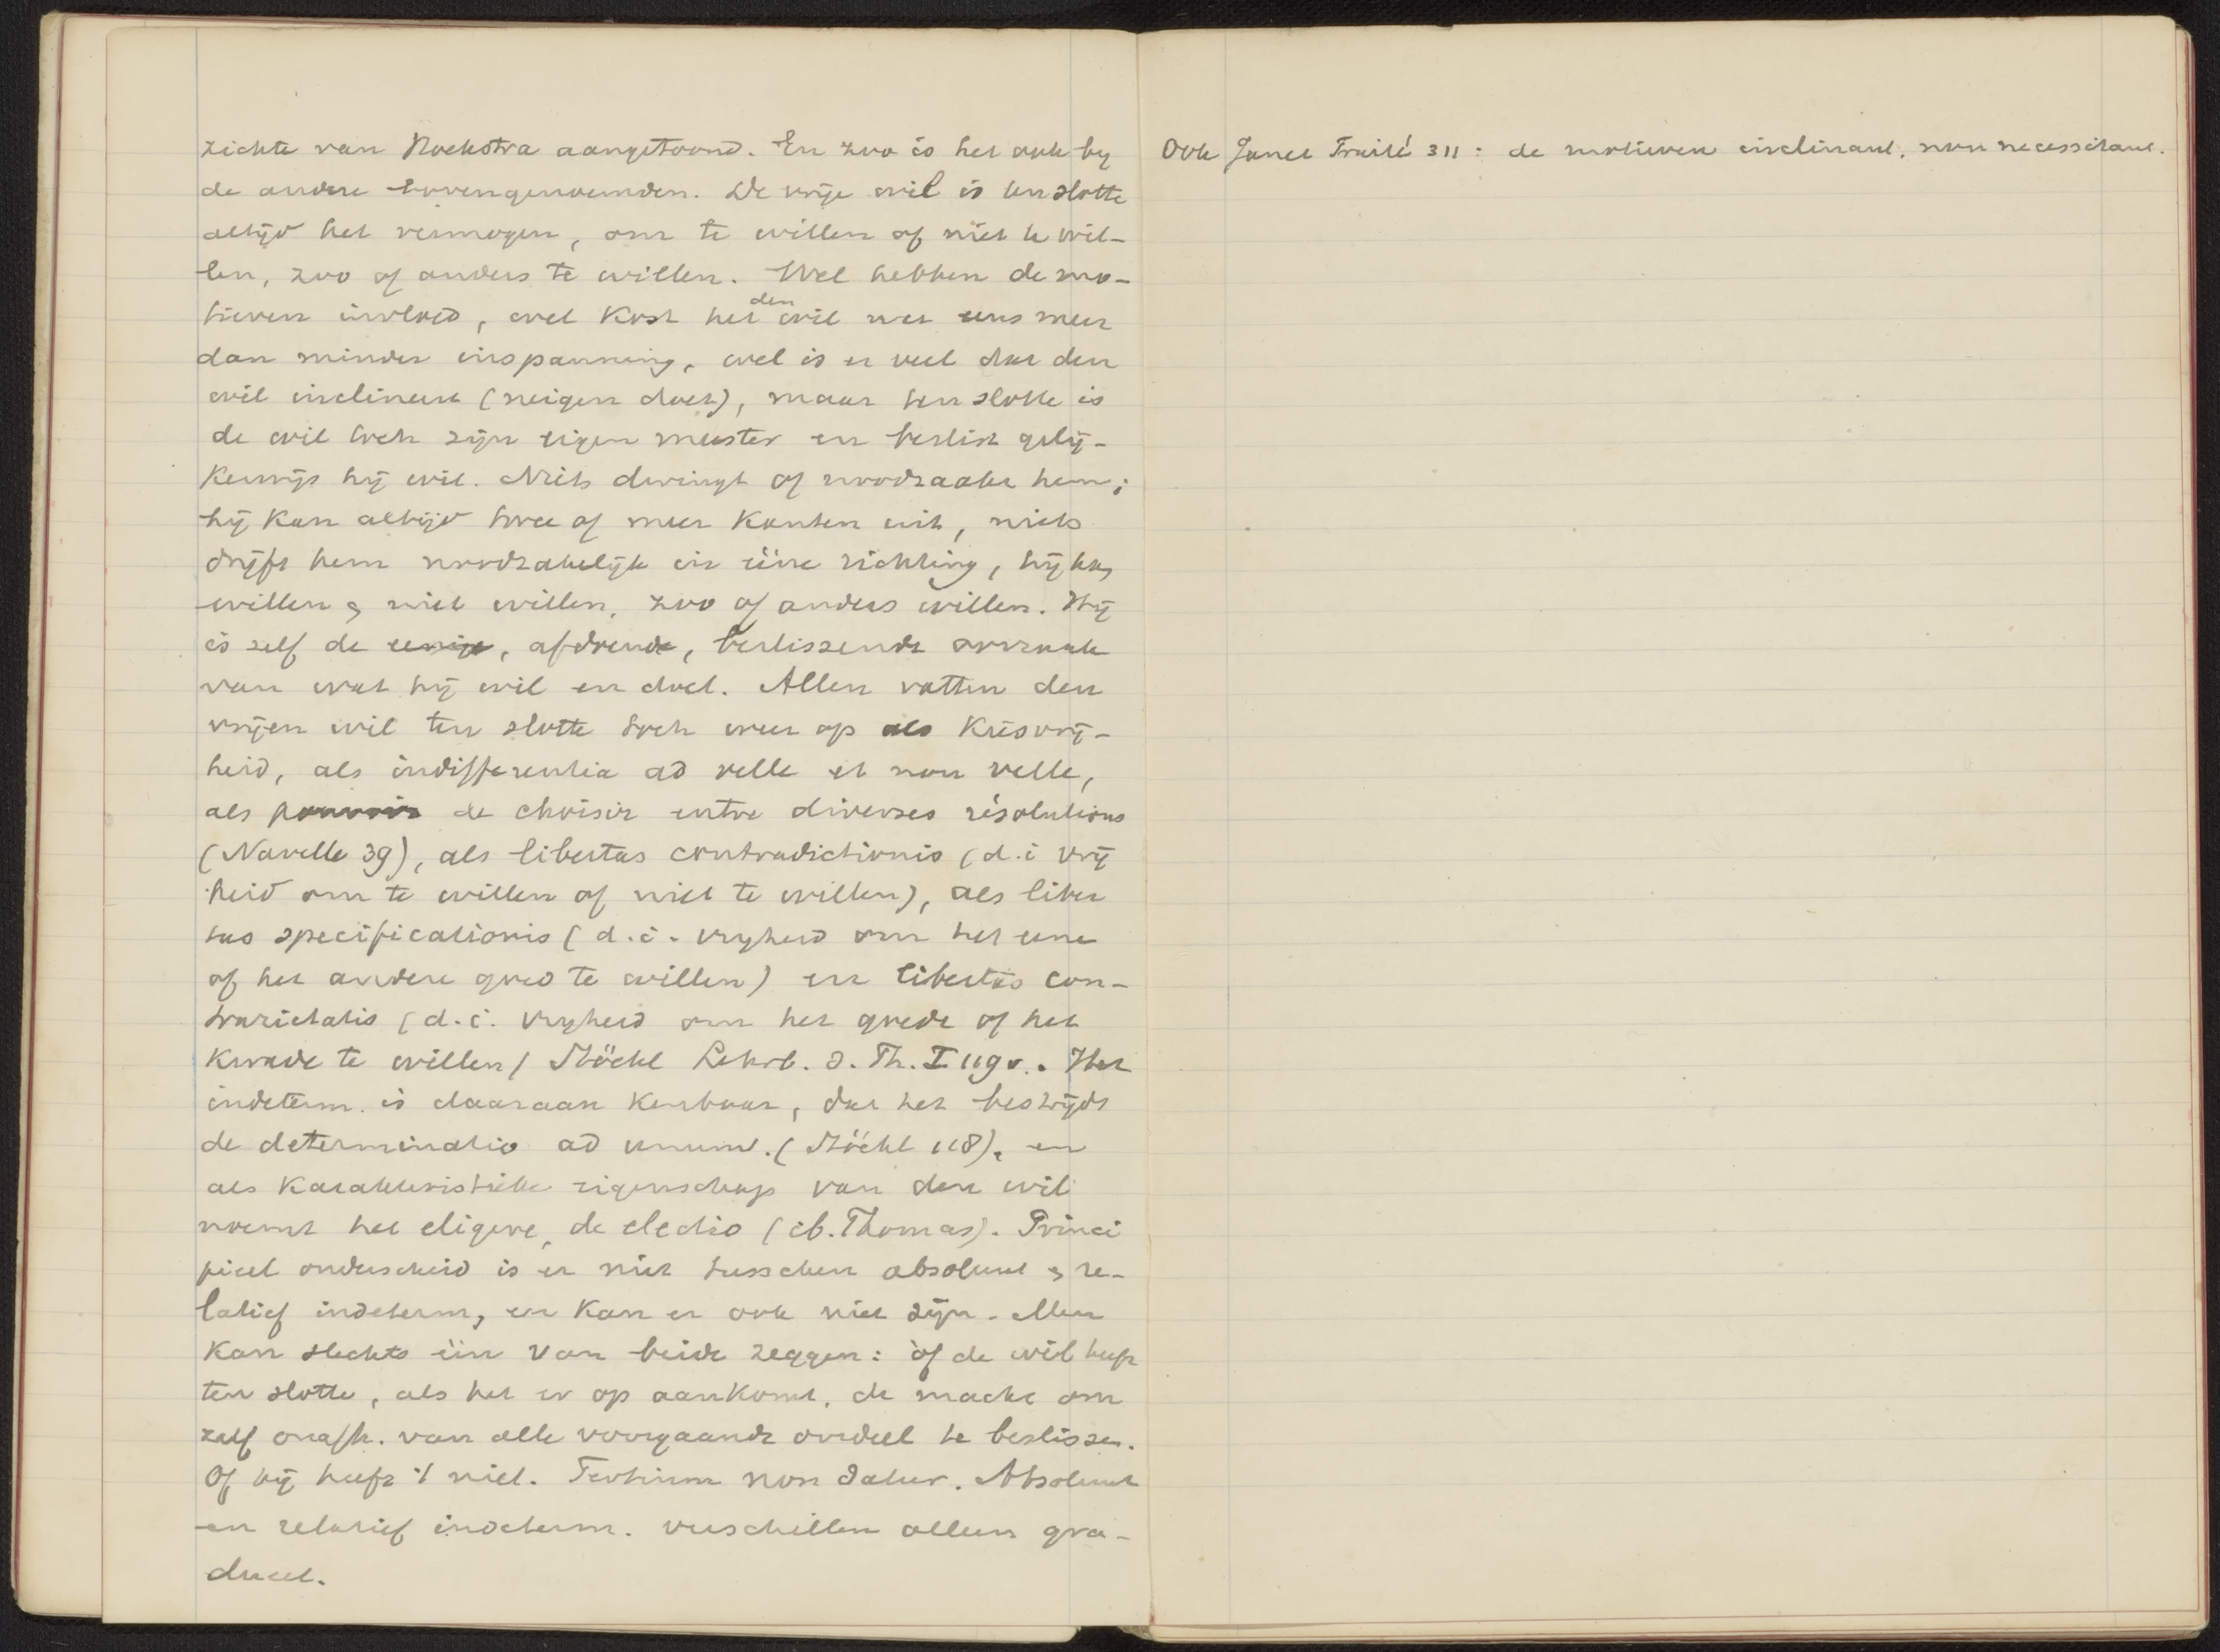 zichte van Hoekstra aangetoond. En zoo is het ook by
de andere bovengenoemden. De vrije wil is ten slotte
altijd het vermogen, om te willen of niet te wil-
len, zoo of anders te willen. Wel hebben de mo-
tieven invloed, wel kost het den wil nu eens meer
dan minder inspanning, wel is er veel dat den
wil inclineert (neigen doet), maar ten slotte is
de wil toch zijn eigen meester en beslist gelij-
kerwijs hij wil. Niets dwingt of noodzaakt hem;
hij kan altijd twee of meer kanten uit, niets
drijft hem noodzakelijk in ééne richting, hij kan
willen & niet willen, zoo of anders willen. Hij
is zelf de eenige, afdoende, beslissende oorzaak
van wat hij wil en doet. Allen vatten den
vrijen wil ten slotte toch weer op als keusvrij-
heid, als indifferentia ad velle et non velle,
als pouvoir de choisir entre diverses résolutions
(Naville 39), als libertas contradictionis (d.i vrij
heid om te willen of niet te willen), als liber
tas specificationis (d.i. vryheid om het eene
of het andere goed te willen) en libertas con-
trarietatis (d.i. vryheid om het goede of het
kwade te willen) Stöckl Lehrb. d. Ph. I 119v.. Het
indeterm. is daaraan kenbaar, dat het bestrijdt
de determinatio ad unum. (Stöckl 118), en
als karakteristieke eigenschap van den wil
noemt het eligere, de electio (ib. Thomas). Princi
pieel onderscheid is er niet tusschen absoluut & re-
latief indeterm, en kan er ook niet zijn. Men
kan slechts één van beide zeggen: òf de wil heeft
ten slotte, als het er op aankomt, de macht om
zelf onafh. van alle voorgaande oordeel te beslissen.
Of hij heeft 't niet. Tertium non datur. Absoluut
en relatief indeterm. verschillen alleen gra-
dueel.
Ook Janet Traité 311: de motieven inclinant, non necessitant.